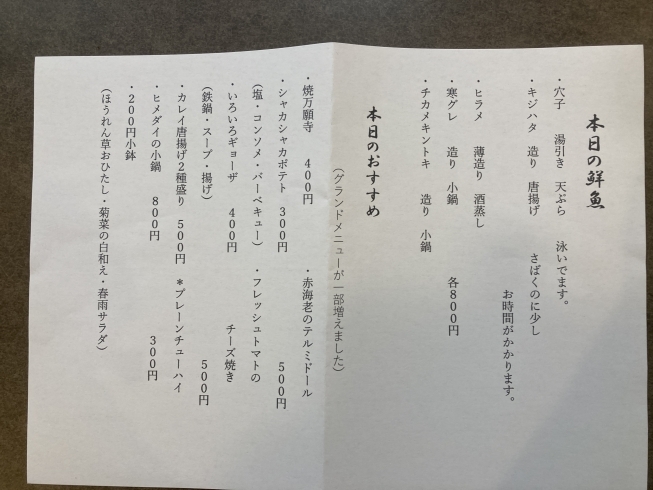 本日の鮮魚
・穴子　湯引き　天ぷら　泳いでます。
・キジハタ　造り　唐揚げ　さばくのに少し
お時間がかかります。
・ヒラメ　薄造り　酒蒸し
・寒グレ　造り　小鍋　各800円
・チカメキントキ　造り　小鍋
本日のおすすめ
（グランドメニューが一部増えました）
・焼万願寺　400円　・赤海老のテルミドール
・シャカシャカポテト　300円　500円
（塩・コンソメ・バーベキュー）　・フレッシュトマトの
・いろいろギョーザ　400円　チーズ焼き
（鉄鍋・スープ・揚げ）　500円
・カレイ唐揚げ2種盛り　500円　＊プレーンチューハイ
・ヒメダイの小鍋　800円　300円
・200円小鉢
（ほうれん草おひたし・菊菜の白和え・春雨サラダ）